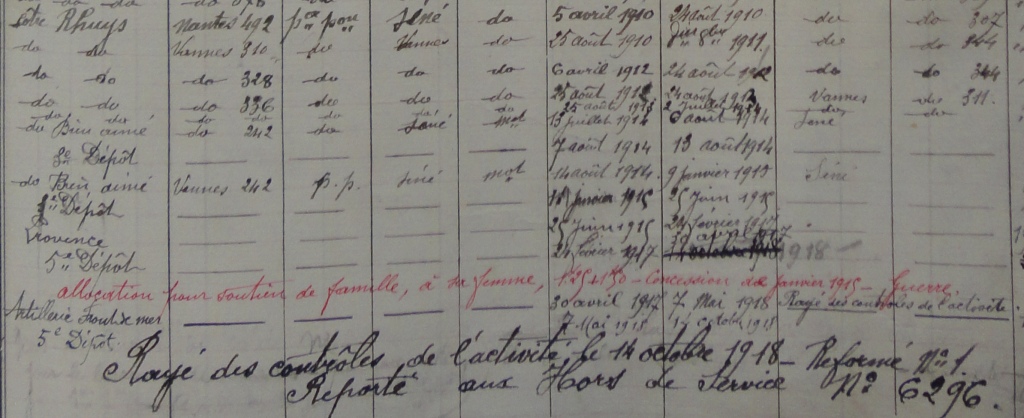 Rhuys Nantes 492 Séné do 5 avril 1910 24 août 1910 do do 307
do do Vannes 310 do Vannes do 25 août 1910 1911 do do 344
do do do 328 do do do 6 avril 1912 24 août 1912 do do 344
do do do 336 do do do 25 août 1912 24 août Vannes do 311.
do do do do do 25 août 2 juillet do do
do Bien aimé do 242 do Séné mot 13 juillet 1914 6 août 1914 Séné
3e Dépôt 7 août 1914 13 août 1914
do Bien aimé Vannes 242 p.p. Séné mot 14 août 1914 9 janvier 1915 Séné
Dépôt janvier 1915 25 juin 1915
Provence 25 juin 1915 24 février 1917
5e Dépôt 24 février 1917 30 avril 1917 14 octobre 1918
allocation pour soutien de famille, à sa femme, 1f25 + Concession du janvier 1915 - Guerre
Artillerie Front de mer 30 avril 1917 7 Mai 1918 Rayé des contrôles de l'activité
5e Dépôt 7 Mai 1918 14 octob 1918
Rayé des contrôles de l'activité, le 14 octobre 1918 - Reformé No 1.
Reporté aux Hors de Service No 6296.